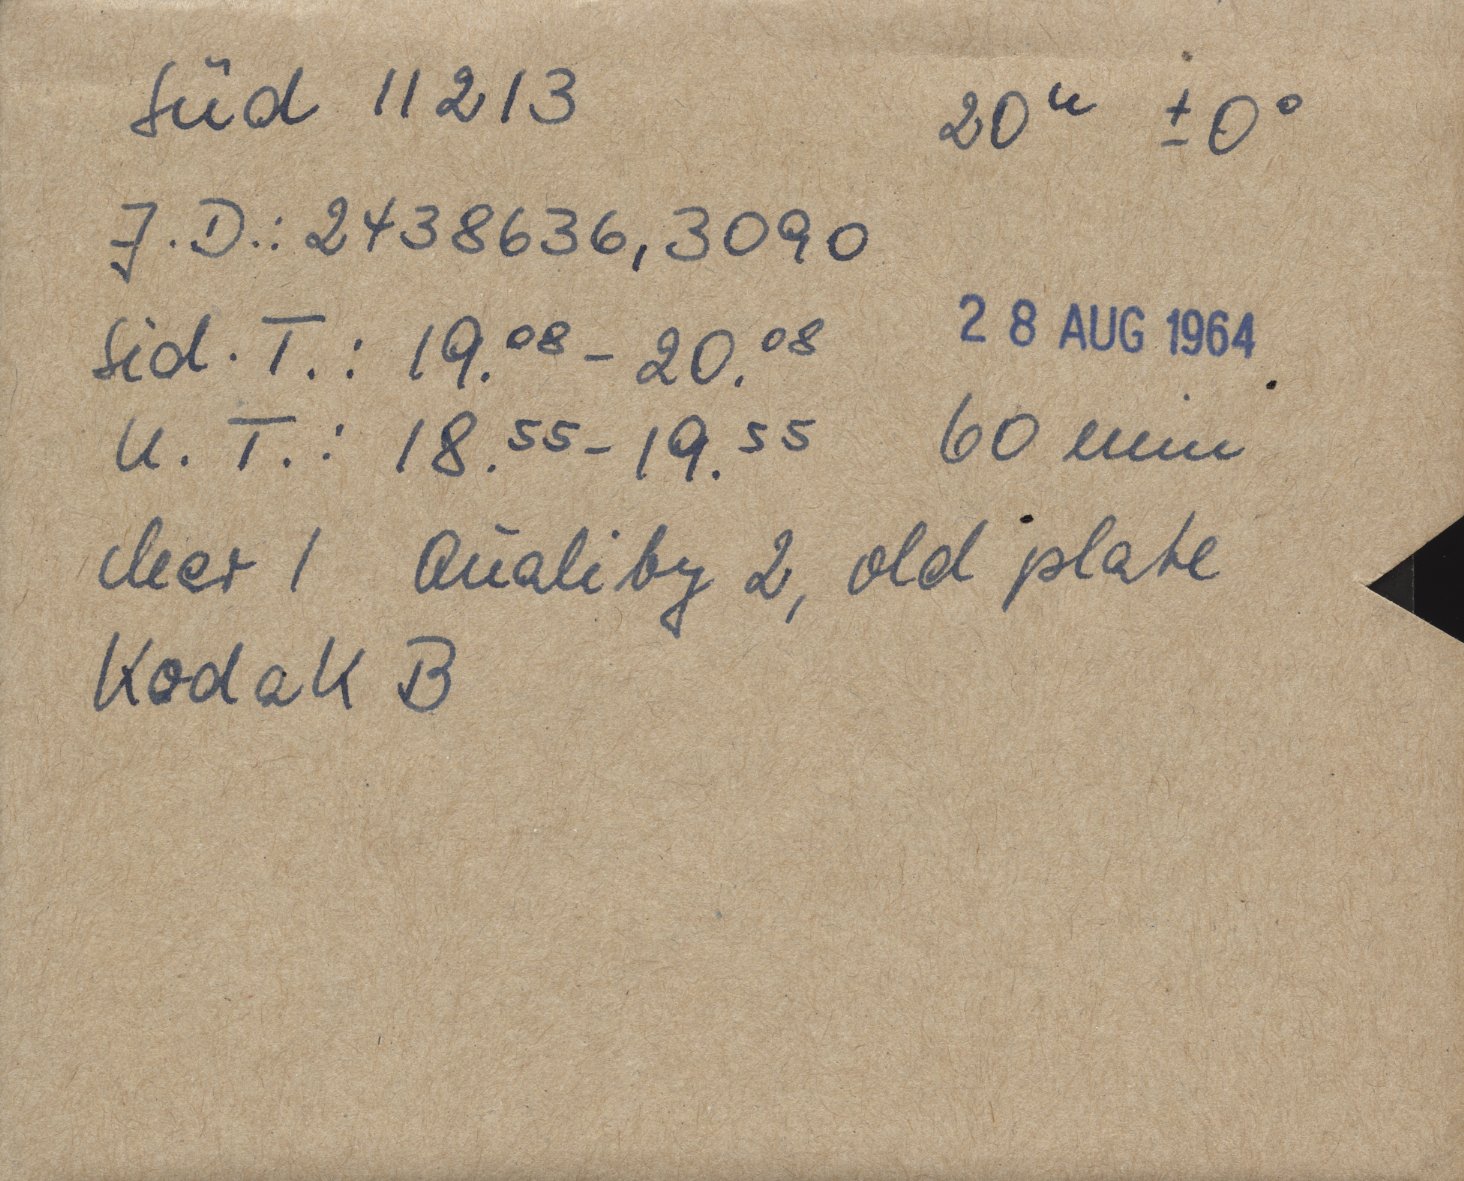 Süd 11213 20ʰ ±0°
J.D.: 2438636,3090
Sid. T.: 19.⁰⁸ - 20.⁰⁸ 28 AUG 1964
U. T.: 18.⁵⁵ - 19.⁵⁵ 60 min
1 Quality 2, old plate
Kodak B